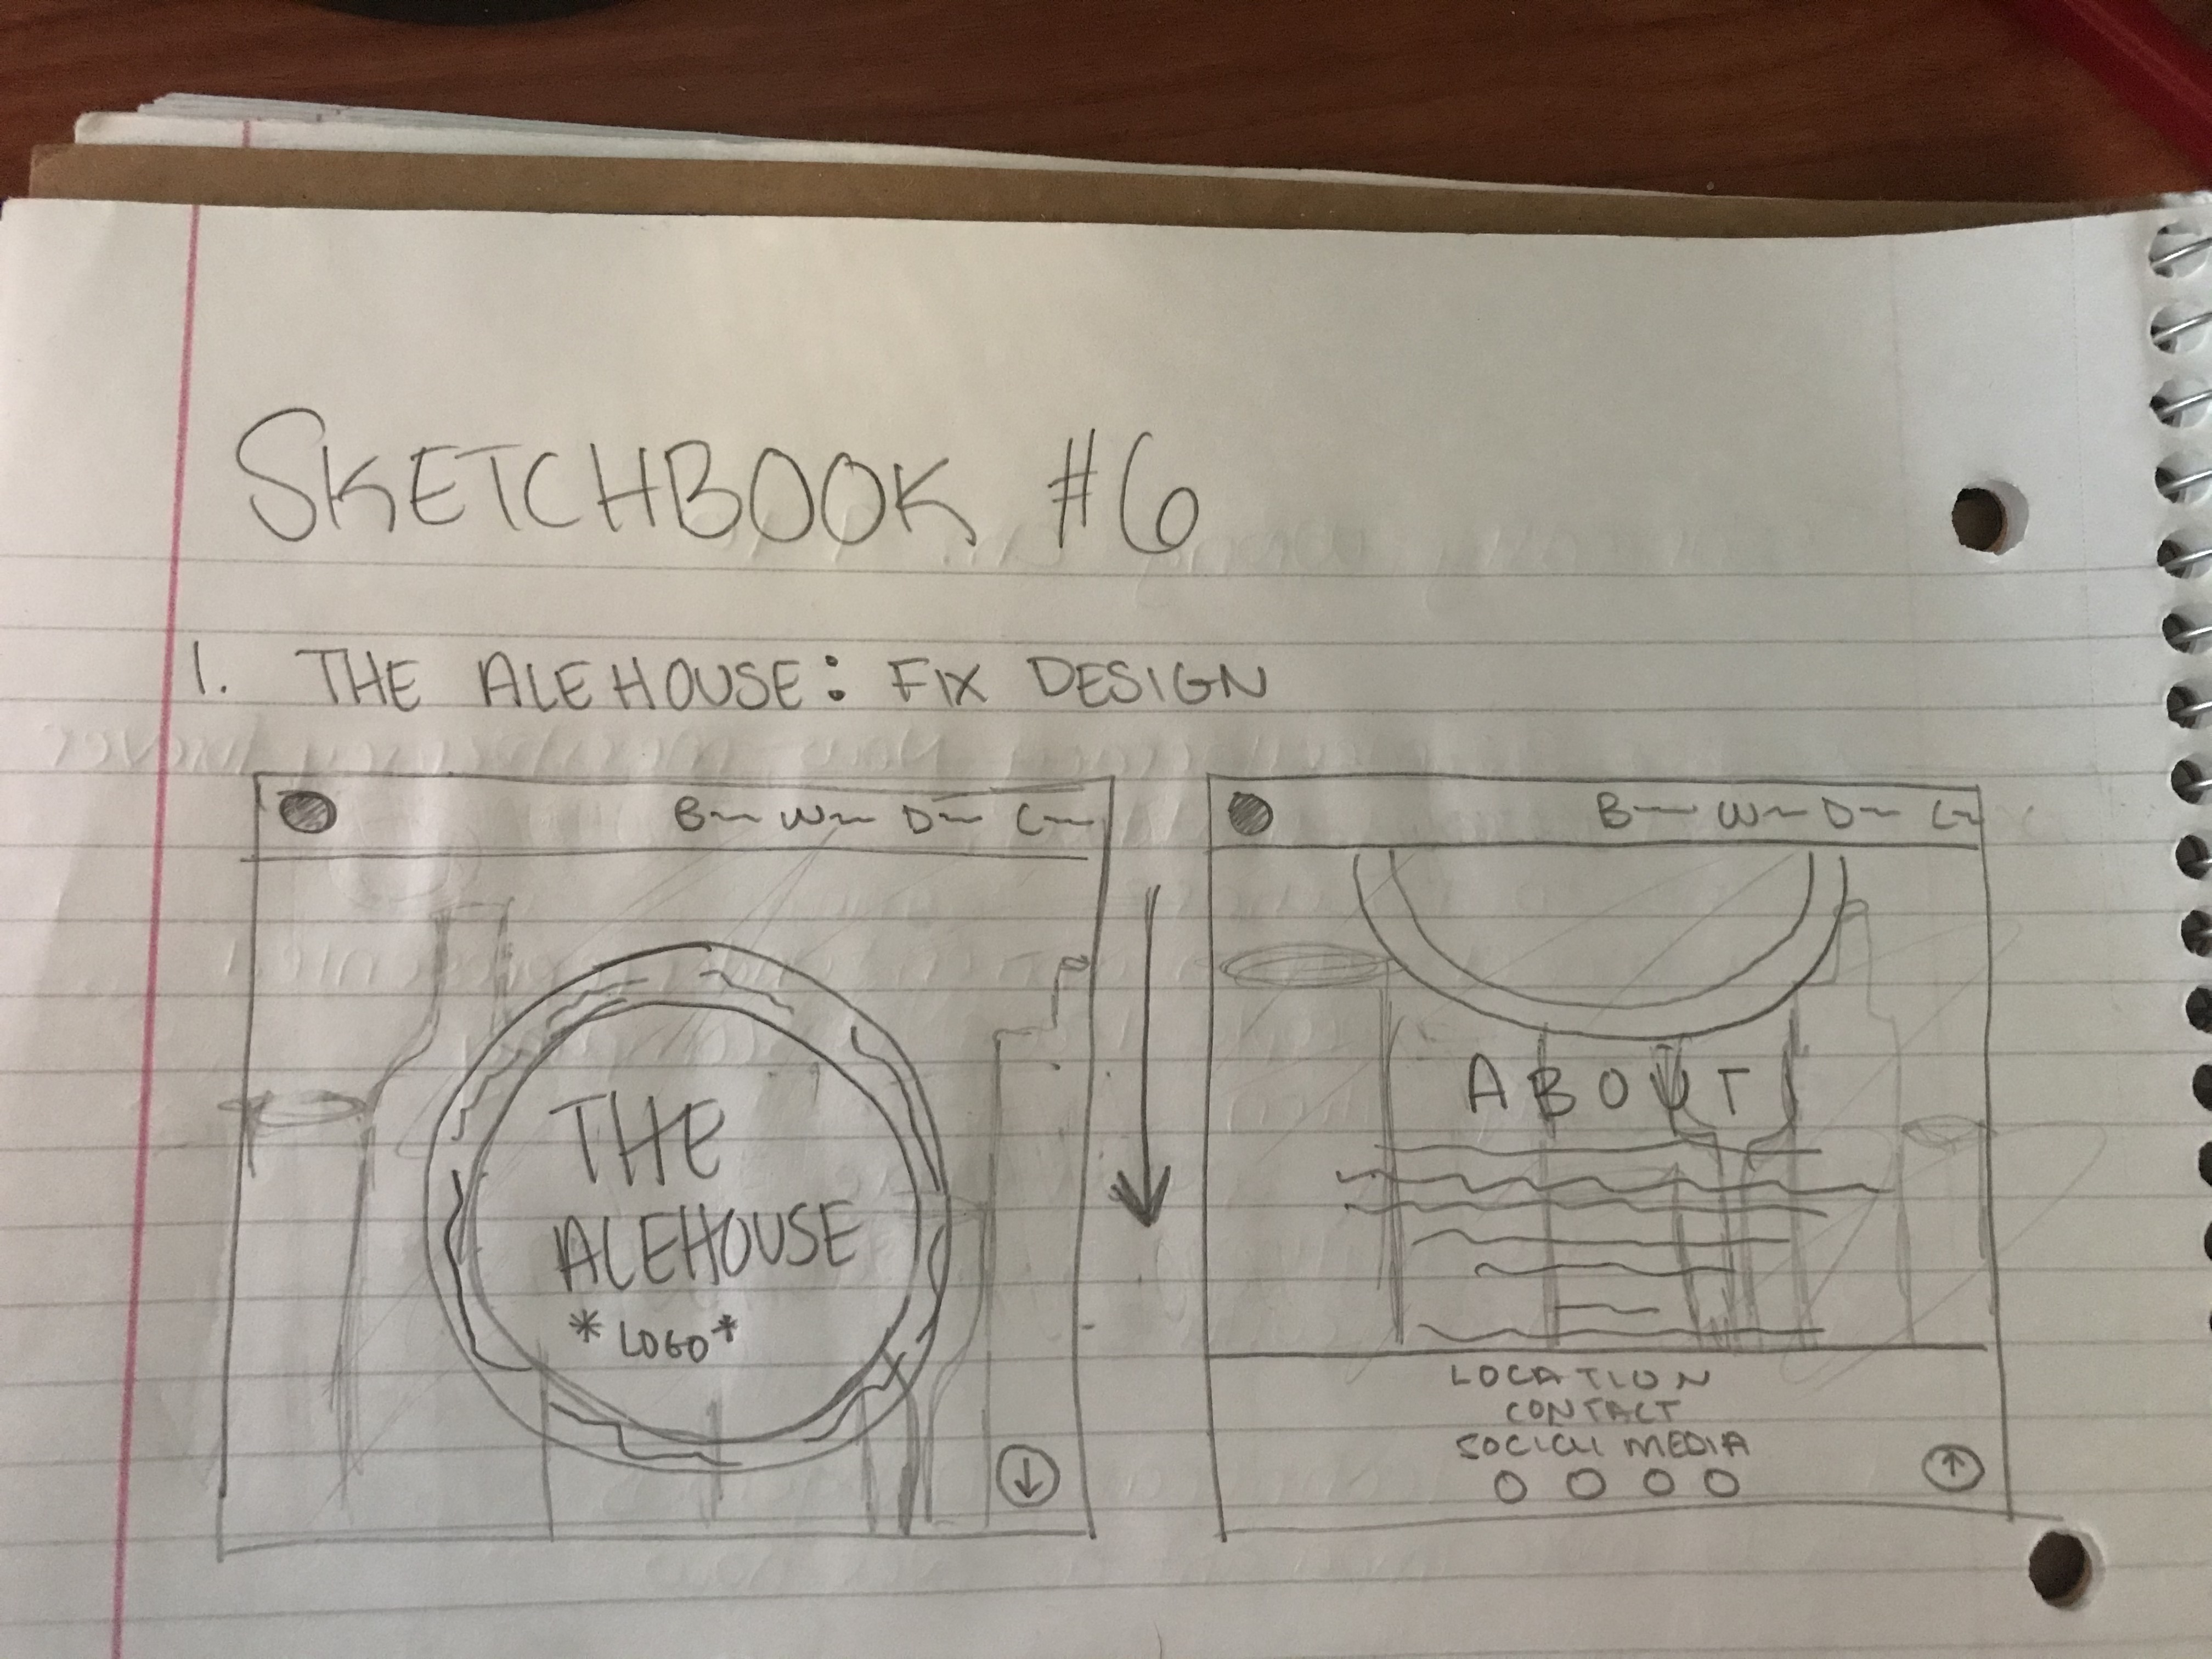 SKETCHBOOK #6
1. THE ALEHOUSE: FIX DESIGN
B W D C
THE
ALEHOUSE
* LOGO *
B W D C
ABOUT
LOCATION
CONTACT
SOCIAL MEDIA